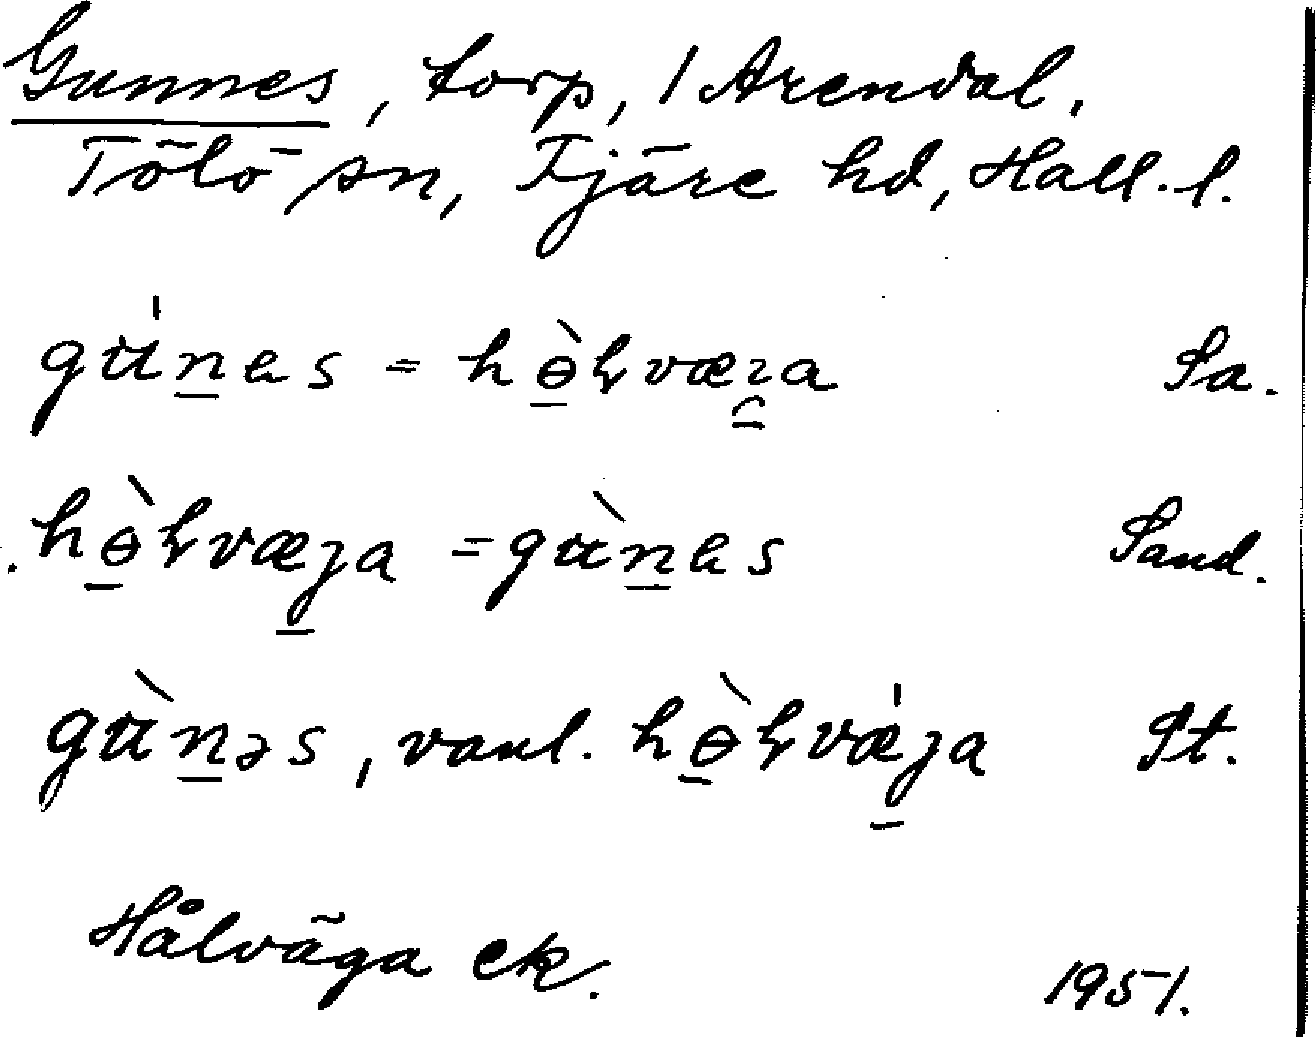 Gunnes, torp, / Arendal.
Tölö sn, Fjäre hd, Hall. l.
gu̍n̲es = hɵ̲̀ꝉvæɿa Sa.
hɵ̲̀ꝉvæȷ̲a = gùn̲es Sand.
gùn̲əs, vanl. hɵ̲̀ꝉvæ̍ȷ̲a St.
Hålväga ek. 1951.